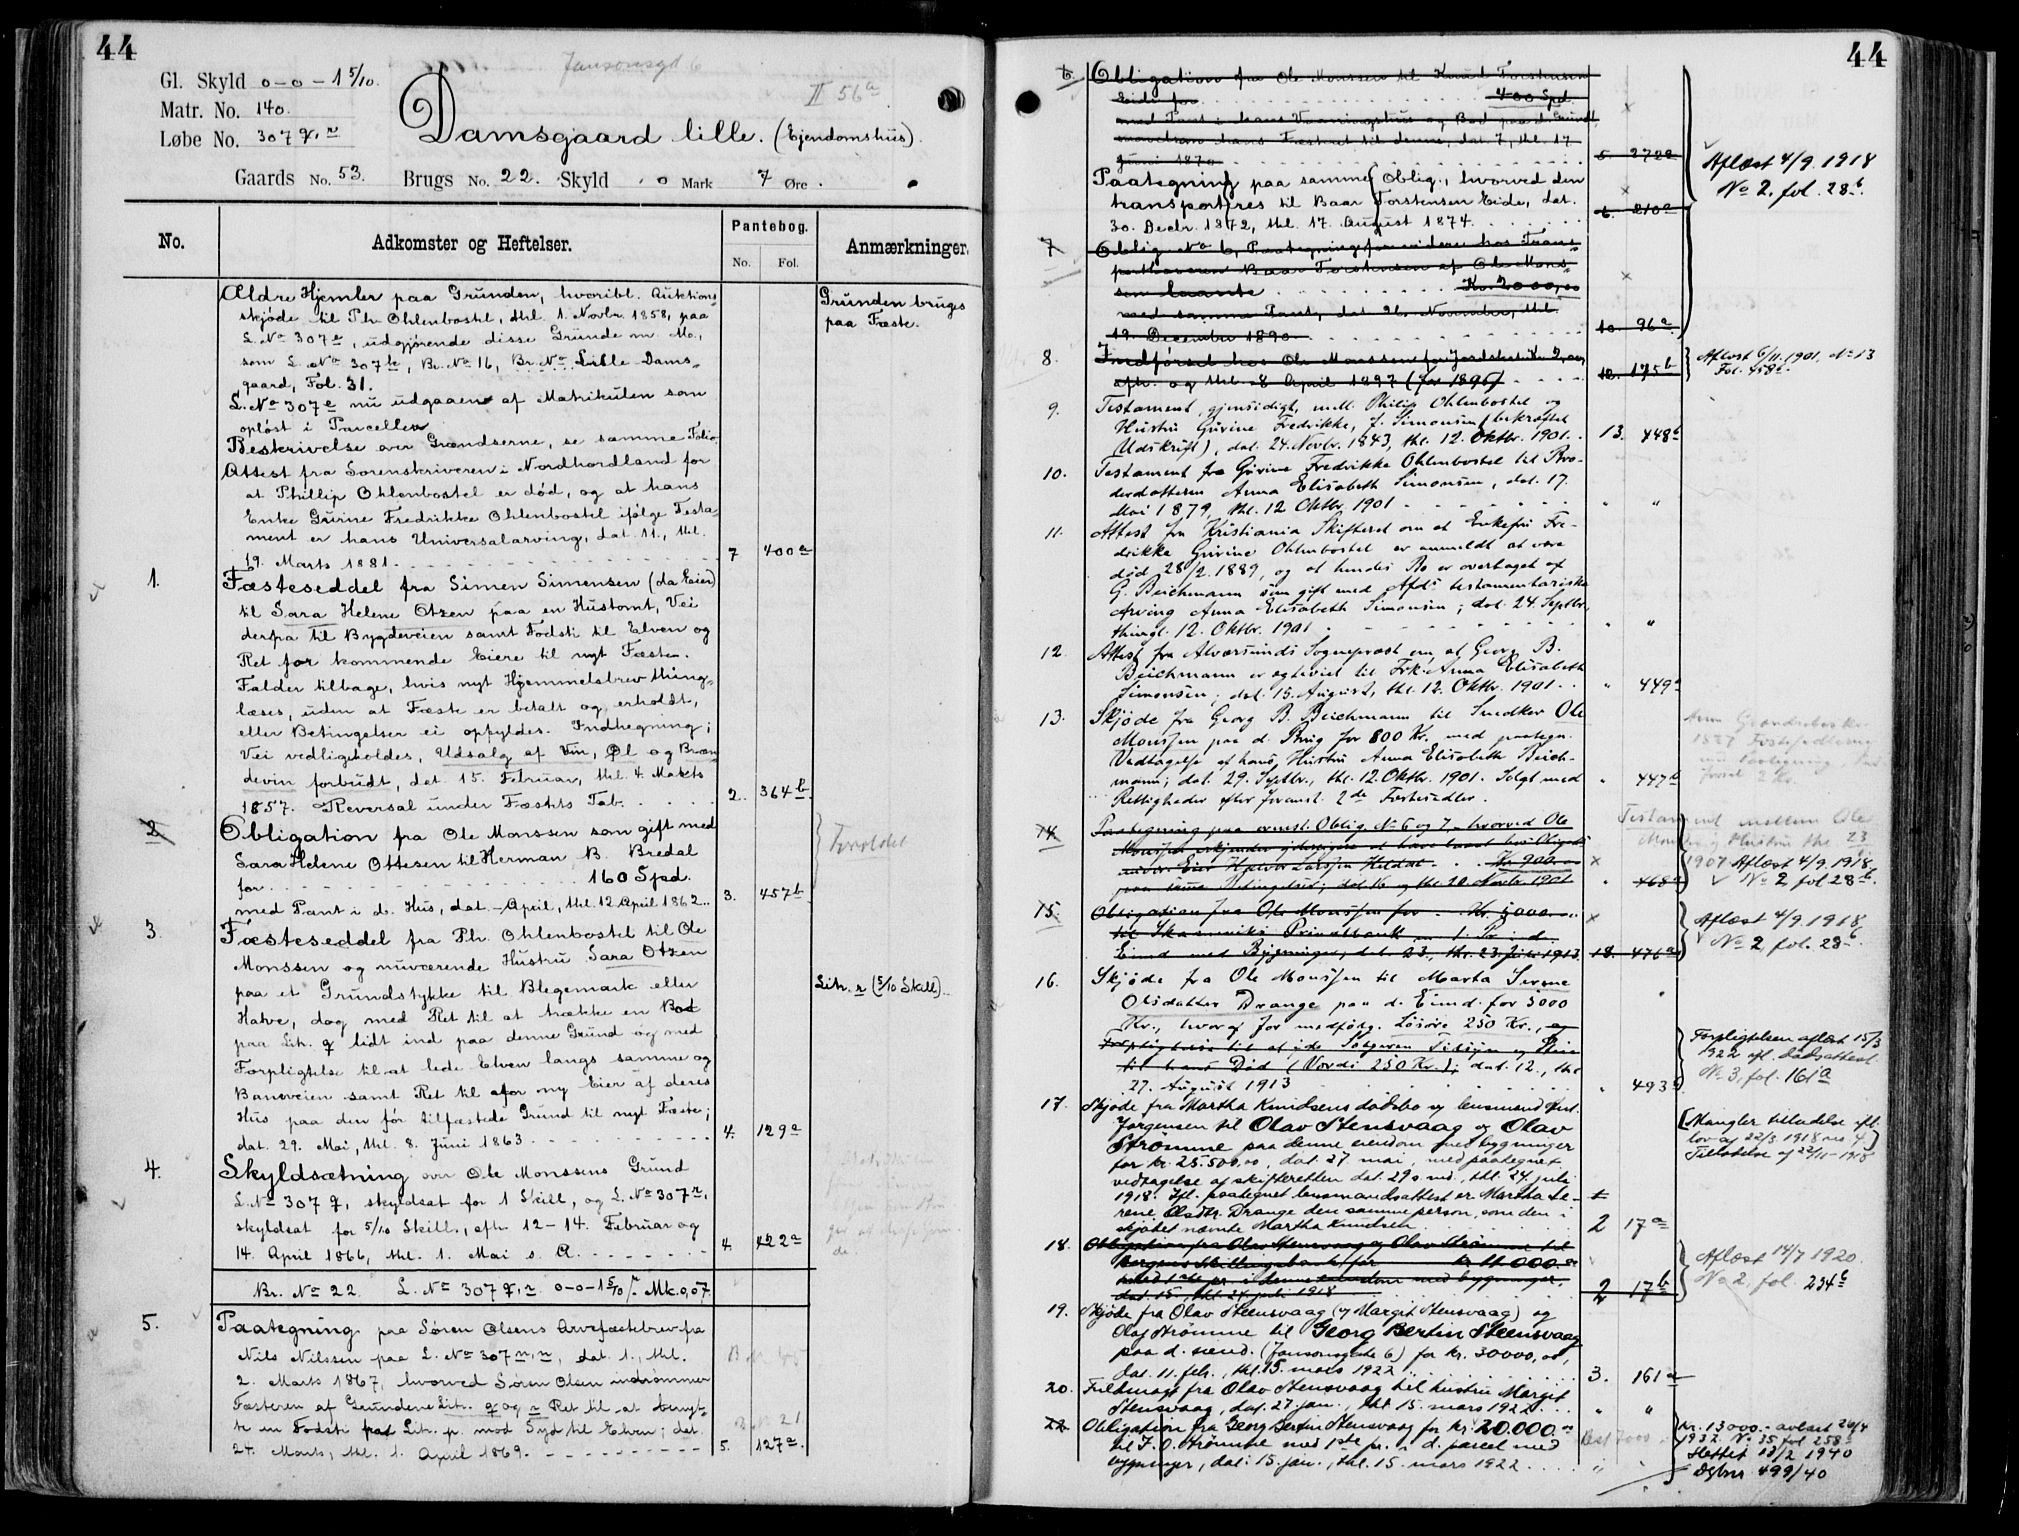 44
Jansonsgd 6
Gl. Skyld 0-0-1 5/10.
II 56a
Matr. No. 140.
Løbe No. 307 q, r
Damsgaard lille. (Ejendomshus).
Gaards No. 53. Brugs No. 22. Skyld 0 Mark 7 Øre.
No. Adkomster og Heftelser. Pantebog. No. Fol. Anmærkninger.
Ældre Hjemler paa Grunden, hvoribl. Auktions=
skjøde til Ph. Ohlenbostel, thl. 1. Novbr. 1858, paa
L. No 307e, udgjørende disse Grunde m. M.,
som L. No 307k, Br. No 16, Br. Nn. Lille Dams=
gaard, Fol. 31.
Grunden bruges
paa Fæste.
L. No 307e nu udgaaen af Matrikulen som
opløst i Parceller
Beskrivelse over Grændserne, se samme Folio.
Attest fra Sorenskriveren i Nordhordland for
at Phillip Ohlenbostel er død, og at hans
Enke Gurine Fredrikke Ohlenbostel ifølge Testa=
ment er hans Universalarving, dat. 11., thl.
19. Marts 1881. 7 400a
1. Fæsteseddel fra Simen Simensen (da Eier)
til Sara Helene Otzen paa en Hustomt, Vei
derfra til Bygdeveien samt Fodsti til Elven og
Ret for kommende Eiere til nyt Fæste.
Falder tilbage, hvis nyt Hjemmelsbrev thing=
læses, uden at Fæste er betalt og erholdt,
eller Betingelser ei opfyldes. Indhegning;
Vei vedligeholdes, Udsalg af Vin, Øl og Bræn=
devin forbudt, dat. 15. Februar, thl. 4. Marts
1857. Reversal under Fæstets Tab. 2. 364b
2 Obligation fra Ole Monssen som gift med
Sara Helene Ottesen til Herman B. Bredal
for 160 Spd.
med Pant i d. Hus, dat. - April, thl. 12 April 1862. 3. 457b
3. Fæsteseddel fra Ph. Ohlenbostel til Ole
Monssen og nuværende Hustru Sara Otzen
paa et Grundstykke til Blegemark eller
Litr. r (5/10 Skill).
Have, dog med Ret til at trække en Bod
paa Litr. q lidt ind paa denne Grund og med
Forpligtelse til at lede Elven langs samme og
Baneveien samt Ret til for ny Eier af deres
Hus paa den før tilfæstede Grund til nyt Fæste;
dat. 29. Mai, thl. 8. Juni 1863. 4. 129a
4. Skyldsætning over Ole Monssens Grund
L. No 307 q, skyldsat for 1 Skill, og L. No 307r,
skyldsat for 5/10 Skill., afh. 12-14. Februar og
14. April 1866, thl. 1. Mai s. A. 4. 422a
Br. No 22 L. No 307 q, r 0-0-1 5/10 Mk. 0,07
5. Paategning paa Søren Olsens Arvefæstebrev fra
Nils Nilssen paa L. No 307 m, n, dat. 1., thl.
2. Marts 1867, hvorved Søren Olsen indrømmer
Fæsteren af Grundene Litr. q og r Ret til at benyt=
te en Fodsti Litr. p. mod Syd til Elven; dat.
24. Marts, thl. 1. April 1869. 5. 127a.
44
6 Obligation fra Ole Monssen til Knud Torstensen
Eide for 400 Spd.
med Pant i hans Vaaningshus og Bod paa d. Grund,
hans Fæsteret til denne, dat. 7, thl. 17
Juni 1870 5. 272a
Paategning paa samme Oblig., hvorved den
transporteres til Baar Torstensen Eide, dat.
30. Decbr. 1872, thl. 17. August 1874. 6. 210a
Aflæst 4/9. 1918
No 2, fol. 28b.
7 Oblig. No 6, Paategning hos Trans=
porthaveren Baar Torstensen af Ole Mons=
sen laante Kr. 2000,00
med samme Pant, dat. 26. November, thl.
19. December 1890 10. 96a
8. Indførsel hos Ole Monssen for Jordskat Kr.
afh. og thl. 8 April 1897 (for 1895) 12. 175b
Aflæst 6/11. 1901, No 13
Fol. 458b.
9. Testament, gjensidigt, mell. Philip Ohlenbostel og
Hustru Gurine Fredrikke, f. Simonsen (bekræftet
Udskrift), dat. 24. Novbr. 1843, thl. 12. Oktbr. 1901. 13. 448b
10. Testament fra Gurine Fredrikke Ohlenbostel til Bro-
derdatteren Anna Elisabeth Simonsen, dat. 17.
Mai 1879, thl. 12 Oktbr. 1901 " "
11. Attest fra Kristiania Skifteret om at Enkefru Fre-
drikke Gurine Ohlenbostel er anmeldt at være
død 28/2. 1889, og at hendes Bo er overtaget af
G. Beichmann som gift med Afd's testamentariske
Arving Anna Elisabeth Simonsen; dat. 24. Septbr.,
thingl. 12. Oktbr. 1901 " "
12. Attest fra Alversunds Sogneprest om at Georg B.
Beichmann er egteviet til Frk. Anna Elisabeth
Simonsen, dat. 15. August, thl. 12. Oktbr. 1901. " 449a
13. Skjøde fra Georg B. Beichmann til Snedker Ole
Monssen paa d. Brug for 800 Kr. med paategn.
Vedtagelse af hans Hustru Anna Elisabeth Beich-
mann; dat. 29. Septbr., thl. 12. Oktbr. 1901. Solgt med
Rettigheder efter foranst. 2de Fæstesedler. " 447b
14 Paategning paa ovenst. Oblig. No 6 og 7, hvorved Ole
Monssen erkjender yderligere at have laant hos
Eier Halvor Larssen Kr. 900,00
paa samme Betingelser; dat. 16 og thl. 20 Novbr. 1901 " 468a
Testament mellem Ole
Monssen og Hustru thl. 23
1907. Aflæst 4/9. 1918,
No 2 fol 28b.
15. Obligation fra Ole Monssen for Kr. 5000
til Skanseviks Privatbank m. 1. Pr. i d.
Eiend. med Bygninger, dat. 23., thl. 23. Juni 1913. 18. 476a
Aflæst 4/9. 1918,
No 2, fol. 28b.
16. Skjøde fra Ole Monssen til Marta Serene
Olsdatter Drange paa d. Eiend. for 5000
Kr., hvoraf for medfølg. Løsøre 250 Kr., og
Forpligtelse til at yde Sælgeren Tilsyn og Stein
til hans Død (Værdi 250 Kr.); dat. 12., thl
27. August 1913 " 493
Forpligtelsen aflæst 15/3
1922 efl. dødsattest.
No 3, fol. 161a
17. Skjøde fra Martha Knudsens dødsbo ved lensmand
Jørgensen til Olav Stensvaag og Olav
Strømme paa denne eiendom med bygninger
for kr. 25.500,00, dat. 27. mai, med paategnet
vedtagelse af skifteretten dat. 29 s. md., thl. 24. juli
1918. Ifl. paategnet lensmandsattest er Martha Se-
rene Olsdtr. Drange den samme person, som den i
skjøtet nævnte Martha Knudsen 2 17a
[Mangler tilladelse efl.
lov af 22/3 1918 no 4.]
Tilladelse af 22/11-1918
18. Obligation fra Olav Stensvaag og Olav Strømme til
Bergens Skillingsbank for kr. 11000,00
med 1ste pr. i denne eiendom med bygninger,
dat. 15., thl. 24. juli 1918 2 17b
Aflæst 14/7 1920.
No 2, fol. 234b
19. Skjøde fra Olav Steensvaag (og Margit Stensvaag) og
Olaf Strømme til Georg Bertin Steensvaag
paa d. eiend. (Jansonsgate 6) for kr. 30000,00,
dat. 11. feb., thl. 15. mars 1922 3. 161a
20. Fuldmagt fra Olav Stensvaag til hustru Margit
Stensvaag, dat. 27. jan., thl. 15. mars 1922 " "
22. Obligation fra Georg Bertin Stensvaag for kr. 20.000.00
til J. O. Strømme med 1ste pr. i d. parcel med
bygninger, dat. 15. jan., thl. 15. mars 1922 " "
Rest 7000
Kr. 13000.- avlæst 26/4
1932. No 35 fol 258
Slettet 13/2 1940
Dgbnr 499/40